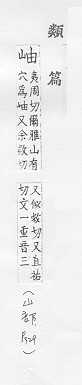 類篇
岫
夷周切爾雅山有
穴為岫又余救切
又似救切又直祐
切文一重音三
(山部